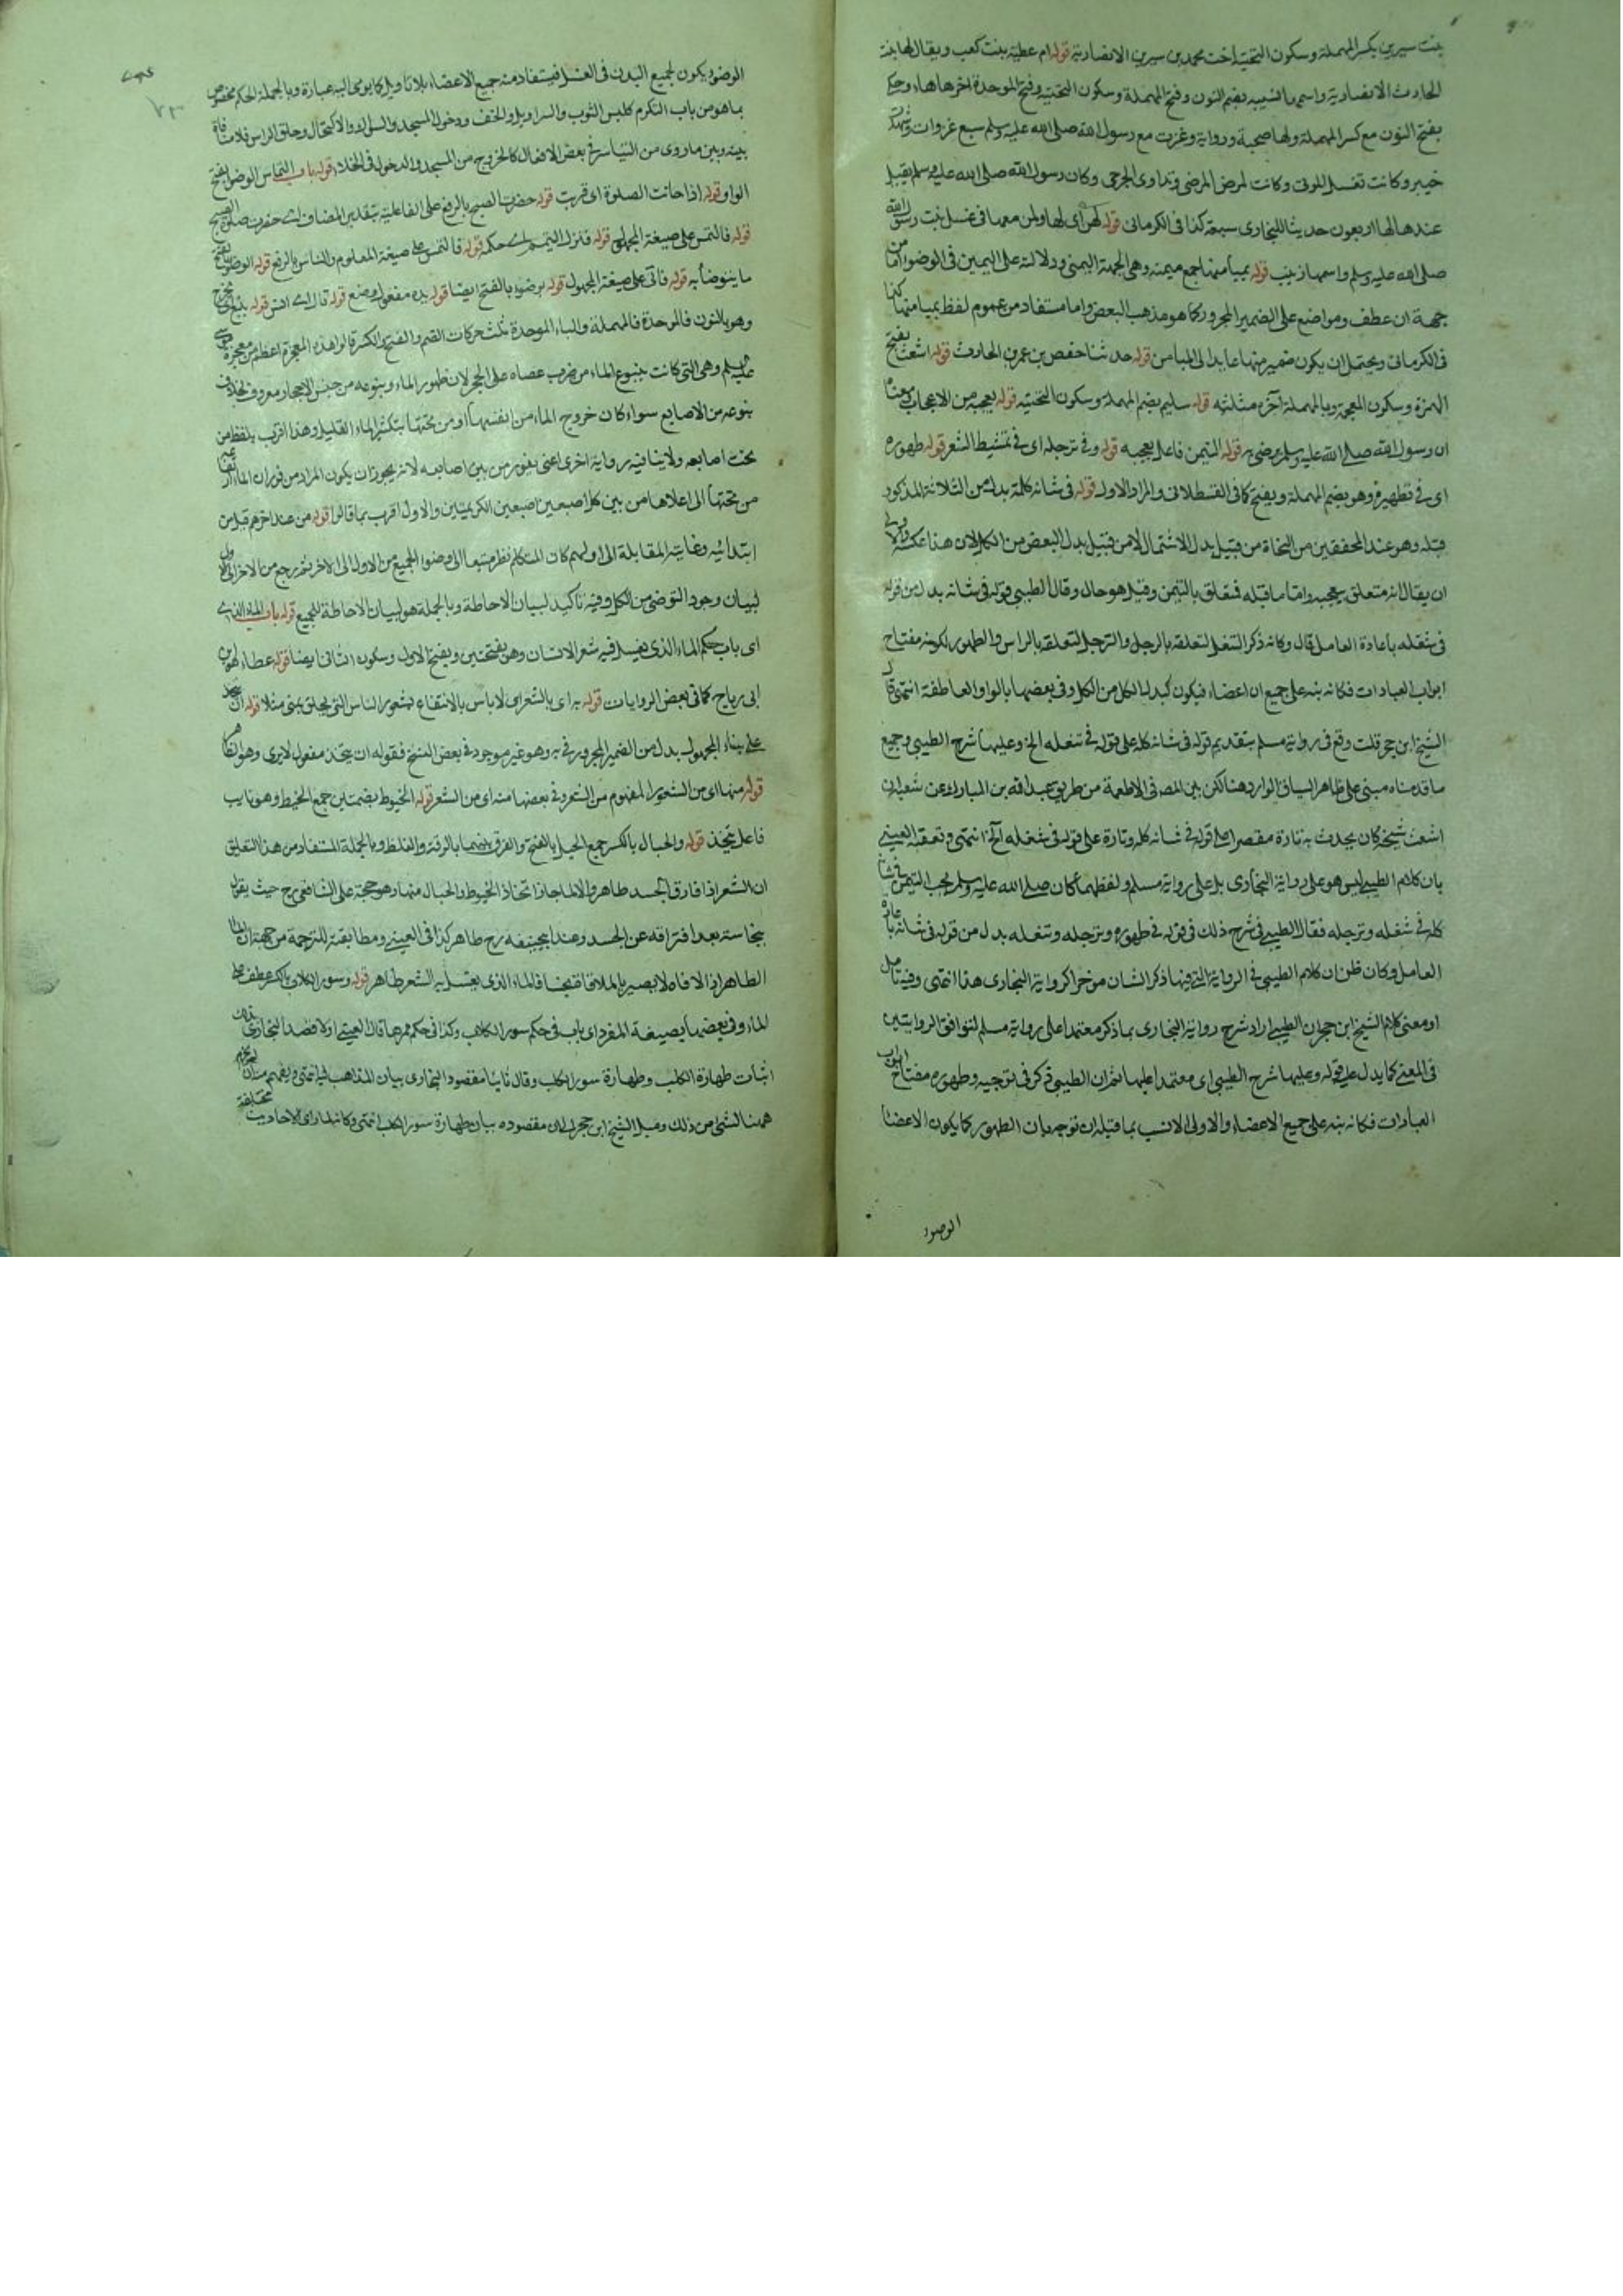 بنت سيرين بكسر المهملة وسكون التحتية اخت محمد بن سيرين الانصارية قوله ام عطية بنت كعب ويقال لها بنت
الحارث الانصارية واسمها نسيبه بضم النون وفتح المهملة وسكون التحتية وفتح الموحدة اخرها هاء وحكي
بفتح النون مع كسر المهملة ولها صحبة ورواية وغزت مع رسول الله صلى الله عليه وسلم سبع غزوات وشهدت
خيبر وكانت تغسل الموتى وكانت تمرض المرضى وتداوى الجرحى وكان رسول الله صلى الله عليه وسلم يقيل
عندها لها اربعون حديثا للبخارى سبعة كذا فى الكرمانى قوله لهن اى لها ولمن معها فى غسل بنت رسول الله
صلى الله عليه وسلم واسمها زينب قوله بميامنها جمع ميمنه وهى الجهة اليمنى ودلالته على اليمين فى الوضوء اما من
جهة ان عطف ومواضع على الضمير المجرور كما هو مذهب البعض واما مستفاد من عموم لفظ بميامنها كذا
فى الكرمانى ويحتمل ان يكون ضمير منها عايدا الى الميامن قوله حدثنا حفص بن عمر بن الحارث قوله اشعث بفتح
الهمزة وسكون المعجمة وبالمهملة آخره مثلثه قوله سليم بضم المهملة وسكون التحتيه قوله يعجبه من الاعجاب معناه
ان رسول الله صلى الله عليه وسلم يرضى به قوله التيمن فاعل يعجبه قوله وفى ترجله اى فى تمشيط الشعر قوله طهوره
اى فى تطهيره وهو بضم المهملة ويفتح كما فى القسطلانى والمراد الاول قوله فى شانه كله بدل من الثلاثة المذكور
قبله وهو عند المحققين من النحاة من قبيل بدل الاشتمال لا من قبيل بدل البعض من الكل لان هذا عكسه والاولى
ان يقال انه متعلق بيعجبه واما ما قبله فتعلق بالتيمن وقيل هو حال وقال الطيبى قوله فى شانه بدل من قوله
فى تنعله باعادة العامل قال وكانه ذكر التنعل لتعلقه بالرجل والترجل لتعلقه بالراس والطهور لكونه مفتاح
ابواب العبادات فكانه نبه على جميع ان اعضاء فيكون كبدل الكل من الكل وفى بعضها بالواو العاطفة انتهى قال
الشيخ ابن حجر قلت وقع فى رواية مسلم بتقديم قوله فى شانه كله على قوله فى تنعله الخ وعليها شرح الطيبى وجميع
ما قدمناه مبنى على ظاهر السياق الوارد هنا لكن بين المصـ فى الاطعمة من طريق عبد الله بن المبارك عن شعبة ان
اشعث شيخه كان يحدث به تارة مقتصرا على قوله فى شانه كله وتارة على قوله فى تنعله آلخ انتهى وتعقبه العينى
بان كلام الطيبى ليس هو على رواية البخارى بل على رواية مسلم ولفظهما كان صلى الله عليه وسلم يحب التيمن فى شانه
كله فى تنعله وترجله فقال الطيبى فى شرح ذلك فى قوله فى طهوره وترجله وتنعله بدل من قوله فى شانه باعادة
العامل وكان ظن ان كلام الطيبى فى الرواية التى فيها ذكر الشان موخرا كرواية البخارى هذا انتهى وفيه تامل
او معنى كلام الشيخ ابن حجر ان الطيبى اراد شرح رواية البخارى بما ذكر معتمدا على رواية مسلم لتوافق الروايتين
فى المعنى كما يدل عليه قوله وعليها شرح الطيبى اى معتمدا عليها ثم ان الطيبى ذكر فى توجيه وطهوره مفتاح ابواب
العبادات فكانه نبه على جميع الاعضاء والاولى الانسب بما قبله ان توجه بان الطهور كما يكون الاعضا
الوضوء
الوضوء يكون لجميع البدن فى الغسل فيستفاد منه جميع الاعضاء بلا تاويل كما يومى اليه عبارة وبالجملة الحكم مخصوص
بما هو من باب التكرم كلبس الثوب والسراويل والخف ودخول المسجد والسواك والاكتحال وحلق الراس فلا منافاة
بينه وبين ما روى من التياسر فى بعض الافعال كالخروج من المسجد والدخول فى الخلاء قوله باب التماس الوضوء بفتح
الواو قوله اذا حانت الصلوة اى قربت قوله حضرت الصبح بالرفع على الفاعلية بتقدير المضاف اى حضرت صلوة الصبح
قوله فالتمس على صيغة المجهول قوله فنزل التيمم اى حكمه قوله فالتمس على صيغة المعلوم والناس بالرفع قوله الوضوء بالفتح
ما يتوضأ به قوله فاتى على صيغة المجهول قوله بوضوء بالفتح ايضا قوله يده مفعول وضع قوله قال اى انس قوله ينبع
وهو بالنون فالموحدة فالمهملة والباء الموحدة ثلث حركات الضم والفتح والكسر قالوا هذه المعجزة اعظم من معجزة موسى
عليه السلم وهى التى كانت ينبوع الماء من ضرب عصاه على الحجر لان ظهور الماء وينبوعه من جنس الاحجار معروف بخلاف
بنوعه من الاصابع سواء كان خروج الماء من انفسها او من تحتها بتكثير الماء القليل وهذا اقرب بلفظ من
تحت اصابعه ولا ينافيه رواية اخرى اعنى يفور من بين اصابعه لانه يجوز ان يكون المراد من فوران الماء
من تحتها الى اعلاها من بين كل اصبعين اصبعين الكريمتين والاول اقرب بما قالوا قوله من عند اخرهم قيل من
ابتدائيه وغايته المقابلة الى اولهم كان المتكلم نظر متبعا الى وضوء الجميع من الاول الى الاخر ثم رجع من الاخر الى الاول
لبيان وجود التوضى من الكل وفيه تاكيد لبيان الاحاطة وبالجملة هو لبيان الاحاطة للجميع قوله باب الماء الذى
اى باب حكم الماء الذى يغسل فيه شعر الانسان وهو بفتحتين وبفتح الاول وسكون الثانى ايضا قوله عطاء هو ابن
ابى رباح كما فى بعض الروايات قوله به اى بالشعر اى لا باس بالانتفاع بشعور الناس التى يحلق بمنى مثلا قوله ان يتخذ
على بناء المجهول بدل من الضمير المجرور فى به وهو غير موجود فى بعض النسخ فقوله ان يتخذ مفعول لا يرى وهو الظاهر
قوله منها اى من الشعور المفهوم من الشعر وفى بعضها منه اى من الشعر قوله الخيوط بضمتين جمع الخيط وهو نايب
فاعل يتخذ قوله والحبال بالكسر جمع الحبل بالفتح والفرق بينهما بالرقة والغلظ وبالجملة المستفاد من هذا التعليق
ان الشعر اذا فارق الجسد طاهر والا لما جاز اتخاذ الخيوط والحبال منها وهو حجة على الشافعى رح حيث يقول
بنجاسته بعد افتراقه عن الجسد وعند ابيحنيفه رح طاهر كذا فى العينى ومطابقته للترجمة من جهة ان الماء
الطاهر اذا لاقاه لا يصير بالملاقاة نجسا فالماء الذى يغسل به الشعر طاهر قوله وسور الكلاب بالكسر عطف على
الماء وفى بعضها بصيغة المفرد اى باب فى حكم سور الكلاب وكذا فى حكم ممرها قال العينى اولا قصد البخارى بذلك
اثبات طهارة الكلب وطهارة سور الكلب وقال ثانيا مقصود البخارى بيان المذاهب انتهى ويفهم
ههنا لشئ من ذلك وميل الشيخ ابن حجر الى ان مقصوده بيان طهارة سور الكلب انتهى وكانه لما راى الاحاديث مختلفة